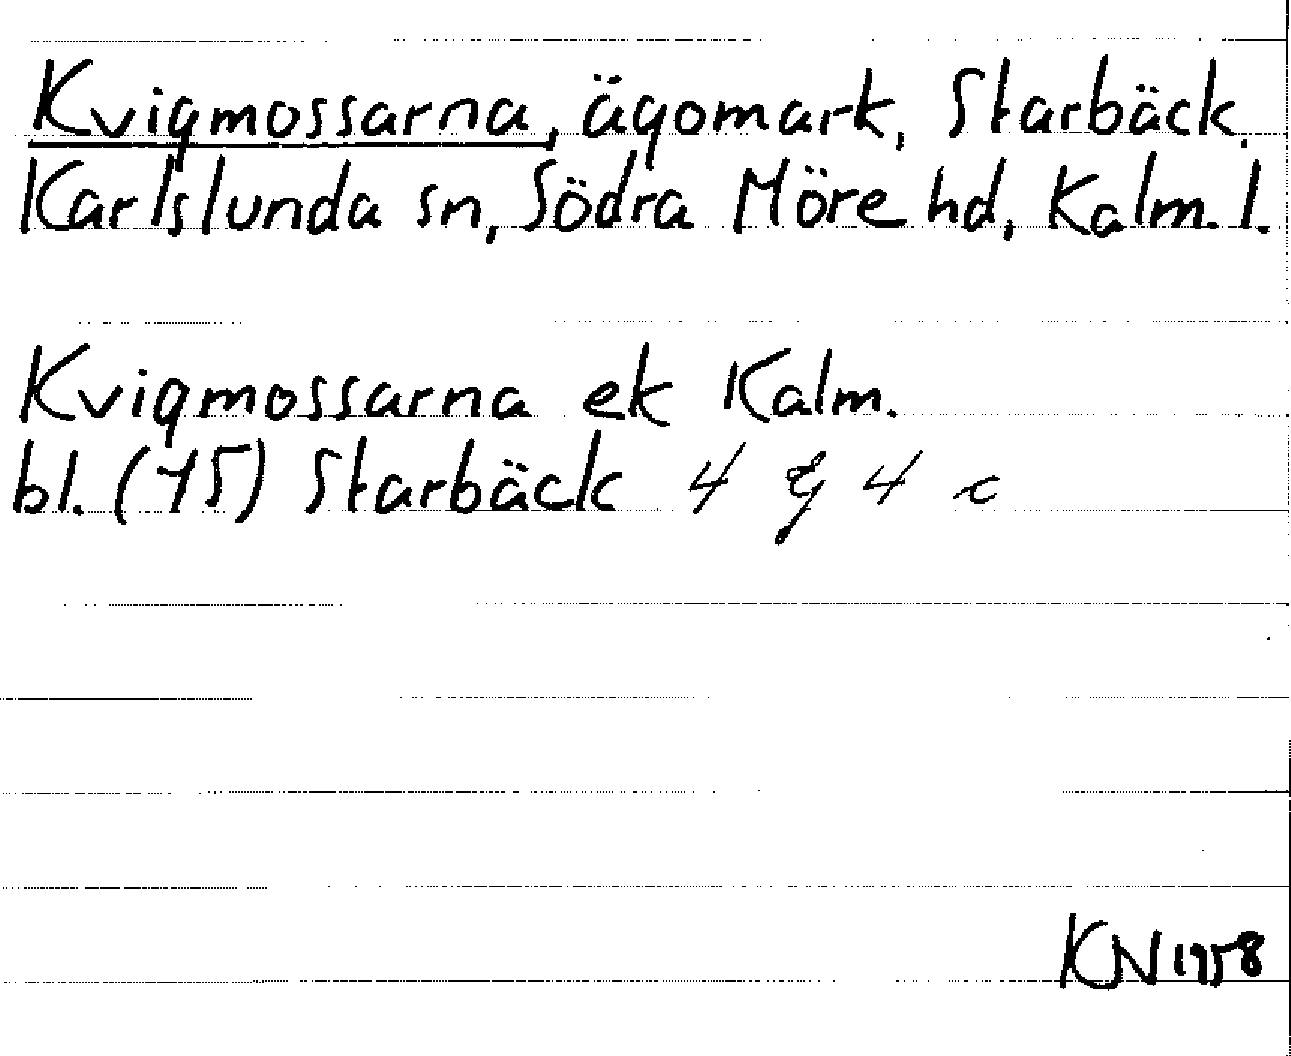 Kvigmossarna, ägomark, Starbäck.
Karlslunda sn, Södra Möre hd, Kalm. l.
Kvigmossarna ek Kalm.
bl. (75) Starbäck 4 g 4 c
KN 1958